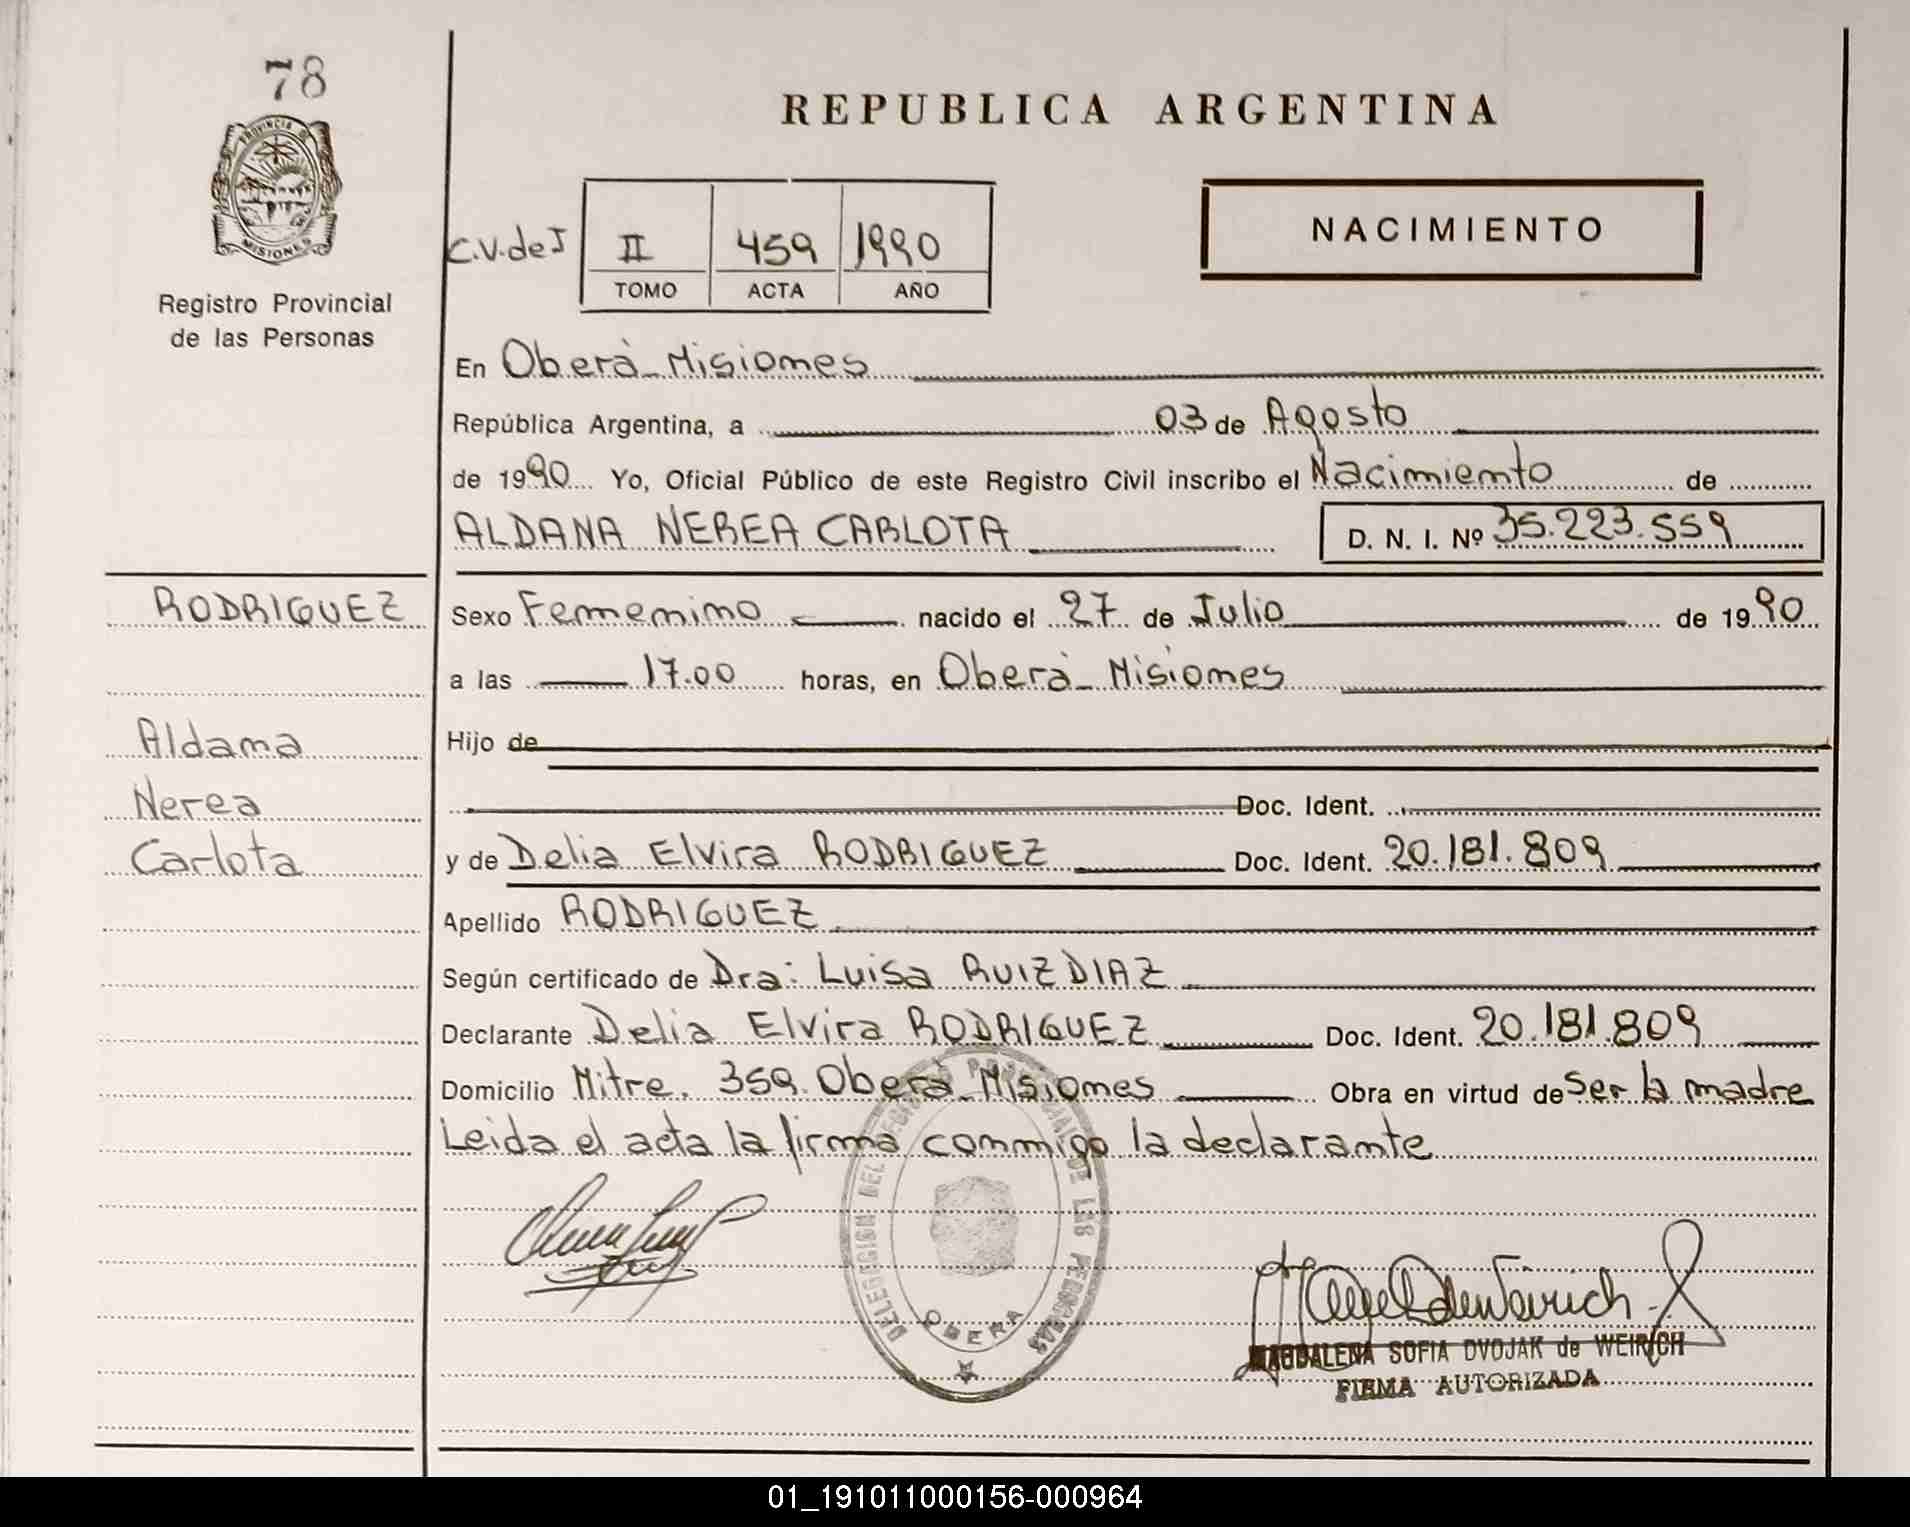 78
PROVINCIA DE
MISIONES
Registro Provincial
de las Personas
REPUBLICA ARGENTINA
C.V. de I II 459 1990
TOMO ACTA AÑO
NACIMIENTO
En Oberá - Misiones
República Argentina, a 03 de Agosto
de 1990 Yo, Oficial Público de este Registro Civil inscribo el Nacimiento de
ALDANA NEREA CARLOTA D. N. I. Nº 35.223.559
RODRIGUEZ
Aldana
Nerea
Carlota
Sexo Femenino nacido el 27 de Julio de 1990
a las 17.00 horas, en Oberá - Misiones
Hijo de
Doc. Ident.
y de Delia Elvira RODRIGUEZ Doc. Ident. 20.181.809
Apellido RODRIGUEZ
Según certificado de Dra: Luisa RUIZ DIAZ
Declarante Delia Elvira RODRIGUEZ Doc. Ident. 20.181.809
Domicilio Mitre. 359. Oberá - Misiones Obra en virtud de ser la madre
Leida el acta la firma conmigo la declarante
DELEGACION DEL REGISTRO PROVINCIAL DE LAS PERSONAS
OBERA
MAGDALENA SOFIA DVOJAK de WEIRICH
FIRMA AUTORIZADA
01_191011000156-000964